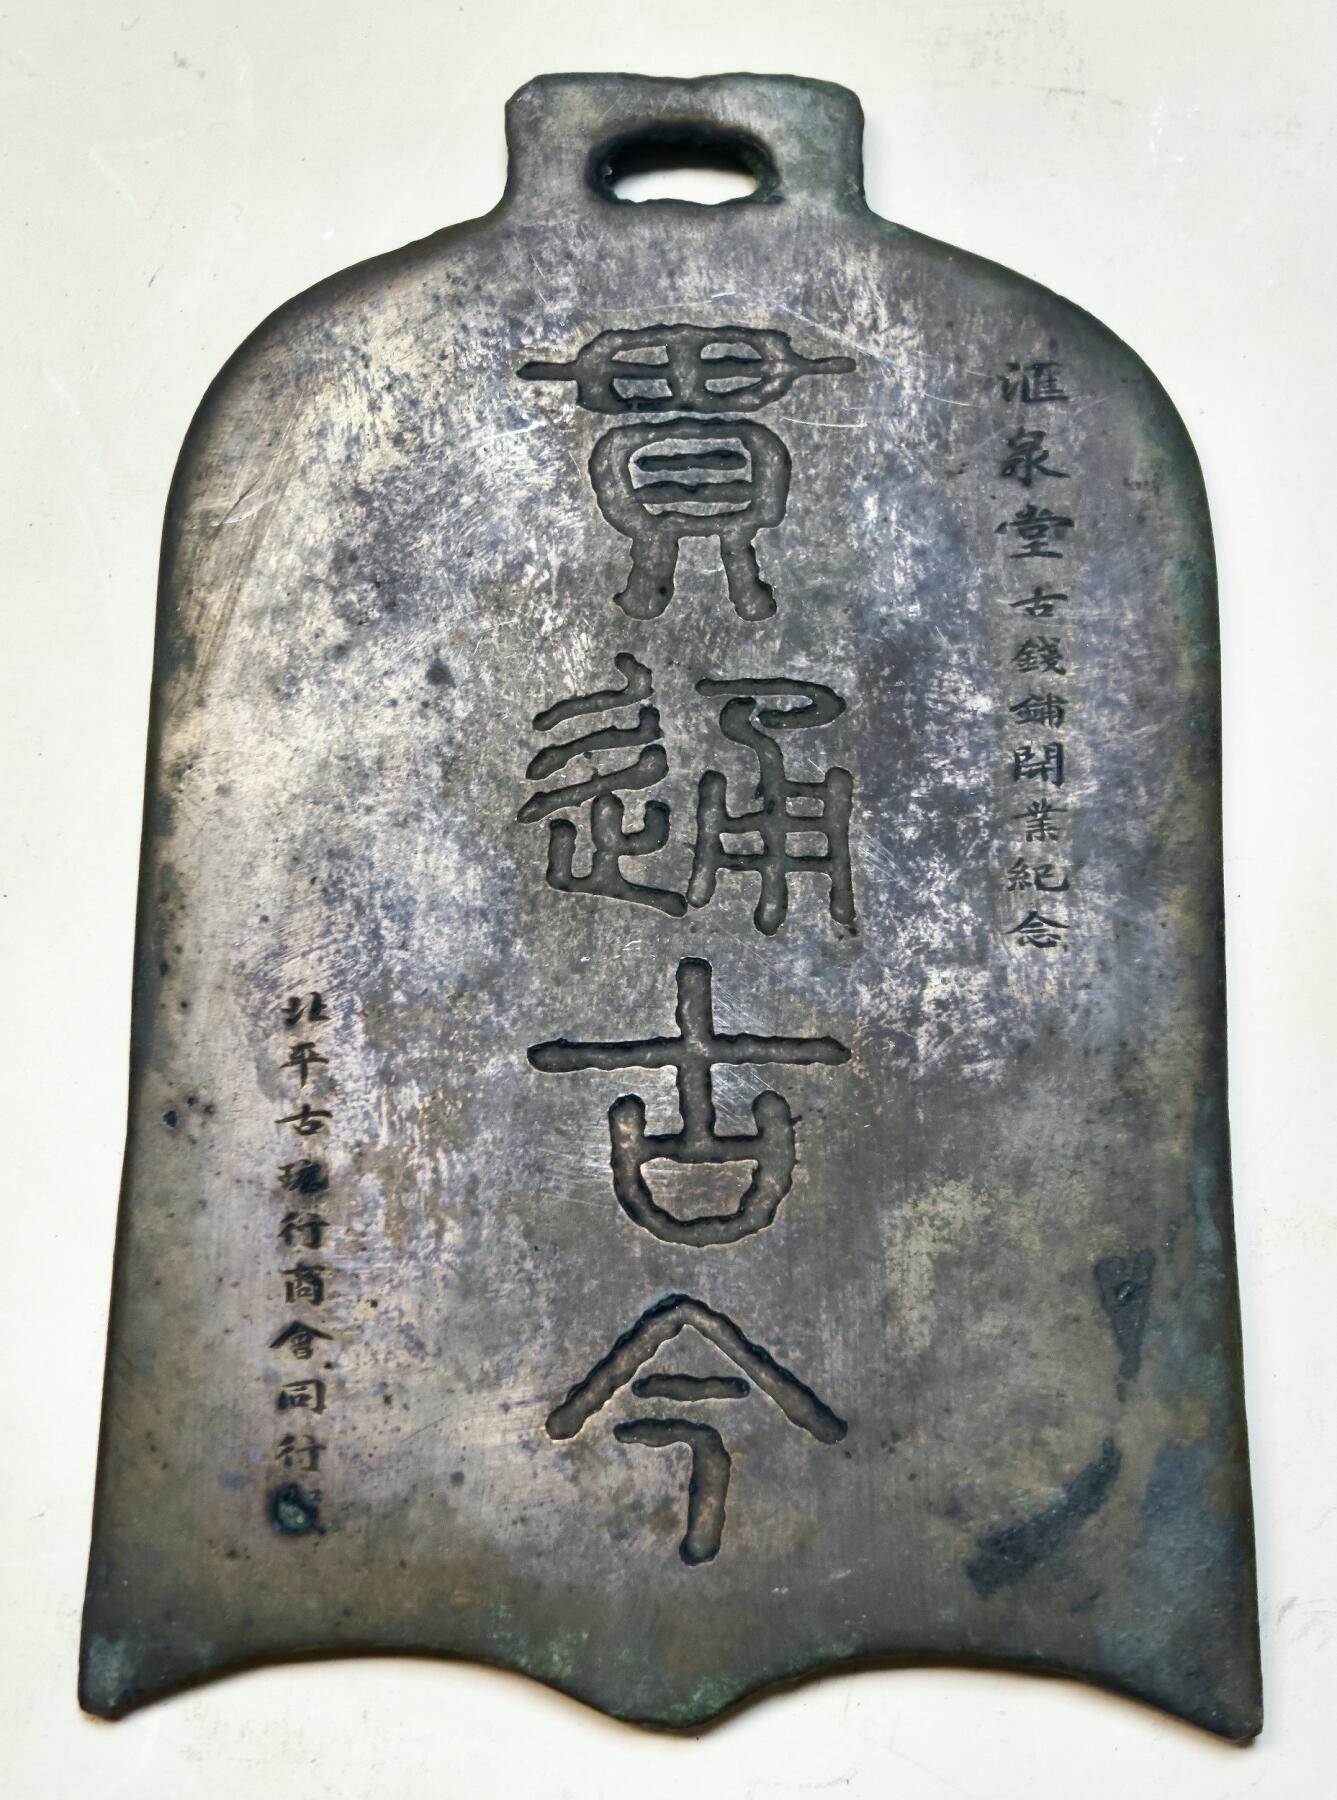 滙泉堂古錢鋪開業紀念
貫通古今
北平古瓌行商會同行